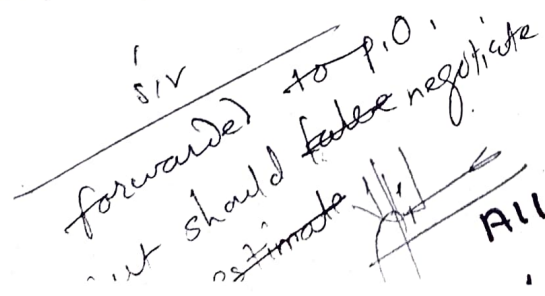 sir
forwarded to p.O.
should negotiate
estimate
All